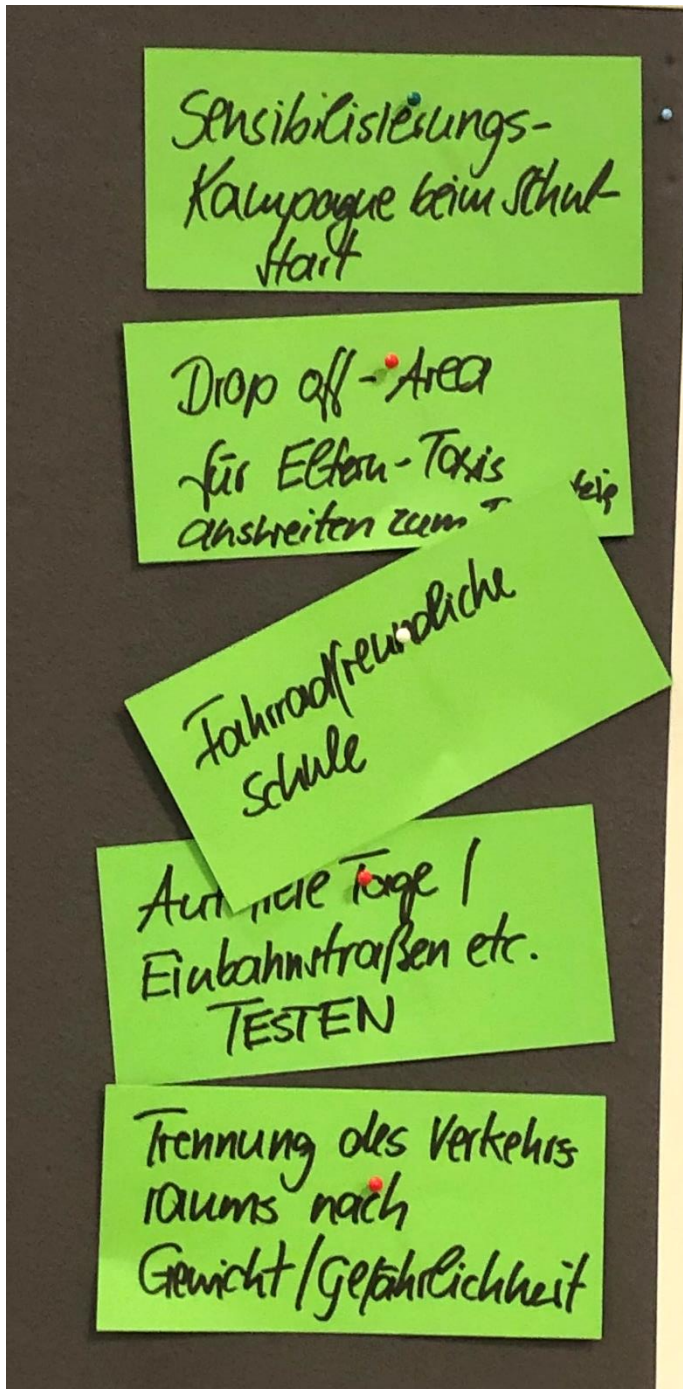 Sensibilisierungs-
Kampagne beim Schul-
start
Drop off-Area
für Eltern-Taxis
ausweiten zum
Fahrradfreundliche
Schule
Tage /
Einbahnstraßen etc.
TESTEN
Trennung des Verkehrs
raums nach
Gewicht/Gefährlichkeit